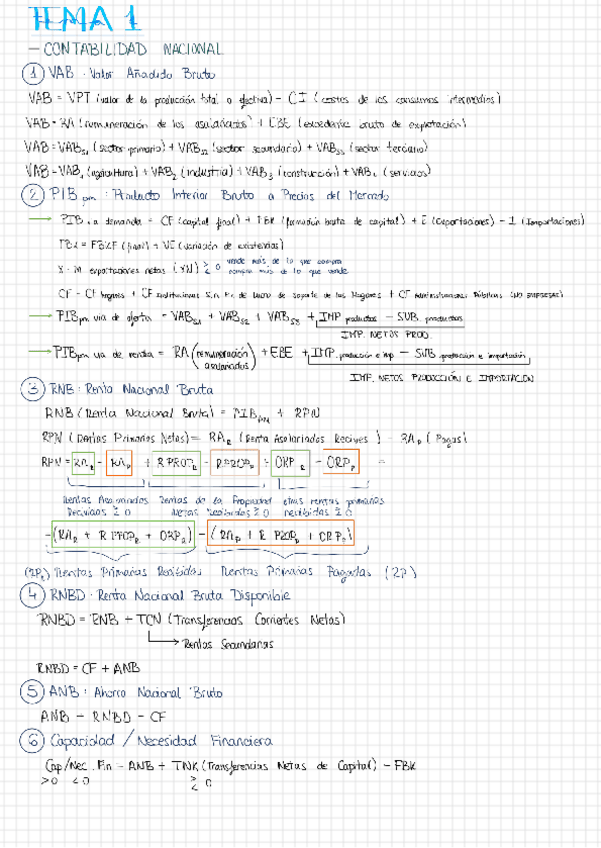 TEMA 1
- CONTABILIDAD NACIONAL
1 VAB: Valor Añadido Bruto
VAB = VPT (valor de la producción total o efectiva) - CI (costes de los consumos intermedios)
VAB = RA (remuneración de los asalariados) + EBE (excedente bruto de explotación)
VAB = VAB S1 (sector primario) + VAB S2 (sector secundario) + VAB S3 (sector terciario)
VAB = VAB1 (agricultura) + VAB2 (industria) + VAB3 (construcción) + VAB4 (servicios)
2 PIB pm: Producto Interior Bruto a Precios del Mercado
→ PIB v.a demanda = CF (capital final) + FBK (formación bruta de capital) + E (Exportaciones) - I (Importaciones)
FBK = FBKF (final) + VE (variación de existencias)
X - M exportaciones netas (XN) ≥ 0 vende más de lo que compra
compra más de lo que vende
CF = CF hogares + CF instituciones S.n. F.s de Lucro de Soporte de los Hogares + CF Administraciones Públicas (NO EMPRESAS)
→ PIBpm vía de oferta = VAB S1 + VAB S2 + VAB S3 + IMP productos - SUB. productos
IMP. NETOS PROD.
→ PIBpm vía de renta = RA (remuneración asalariados) + EBE + IMP. producción e imp - SUB. producción e importación
IMP. NETOS PRODUCCIÓN E IMPORTACIÓN
3 RNB: Renta Nacional Bruta
RNB (Renta Nacional Bruta) = PIBpm + RPN
RPN (Rentas Primarias Netas) = RA R (Renta Asalariados Recibes) - RA P (Pagas)
RPN = RA R - RA P + R PROP R - R PROP P + ORP R - ORP P =
Rentas Asalariados Rentas de la Propiedad otras rentas primarias
Recibidas ≥ 0 Netas Recibidas ≥ 0 recibidas ≥ 0
- (RA R + R PROP R + ORP R) - (RA P + R PROP P + ORP P)
(RP R) Rentas Primarias Recibidas Rentas Primarias Pagadas (RP)
4 RNBD: Renta Nacional Bruta Disponible
RNBD = RNB + TCN (Transferencias Corrientes Netas)
→ Rentas Secundarias
RNBD = CF + ANB
5 ANB: Ahorro Nacional Bruto
ANB = RNBD - CF
6 Capacidad / Necesidad Financiera
Cap/Nec. Fin = ANB + TNK (Transferencias Netas de Capital) - FBK
>0 <0 ≥ 0